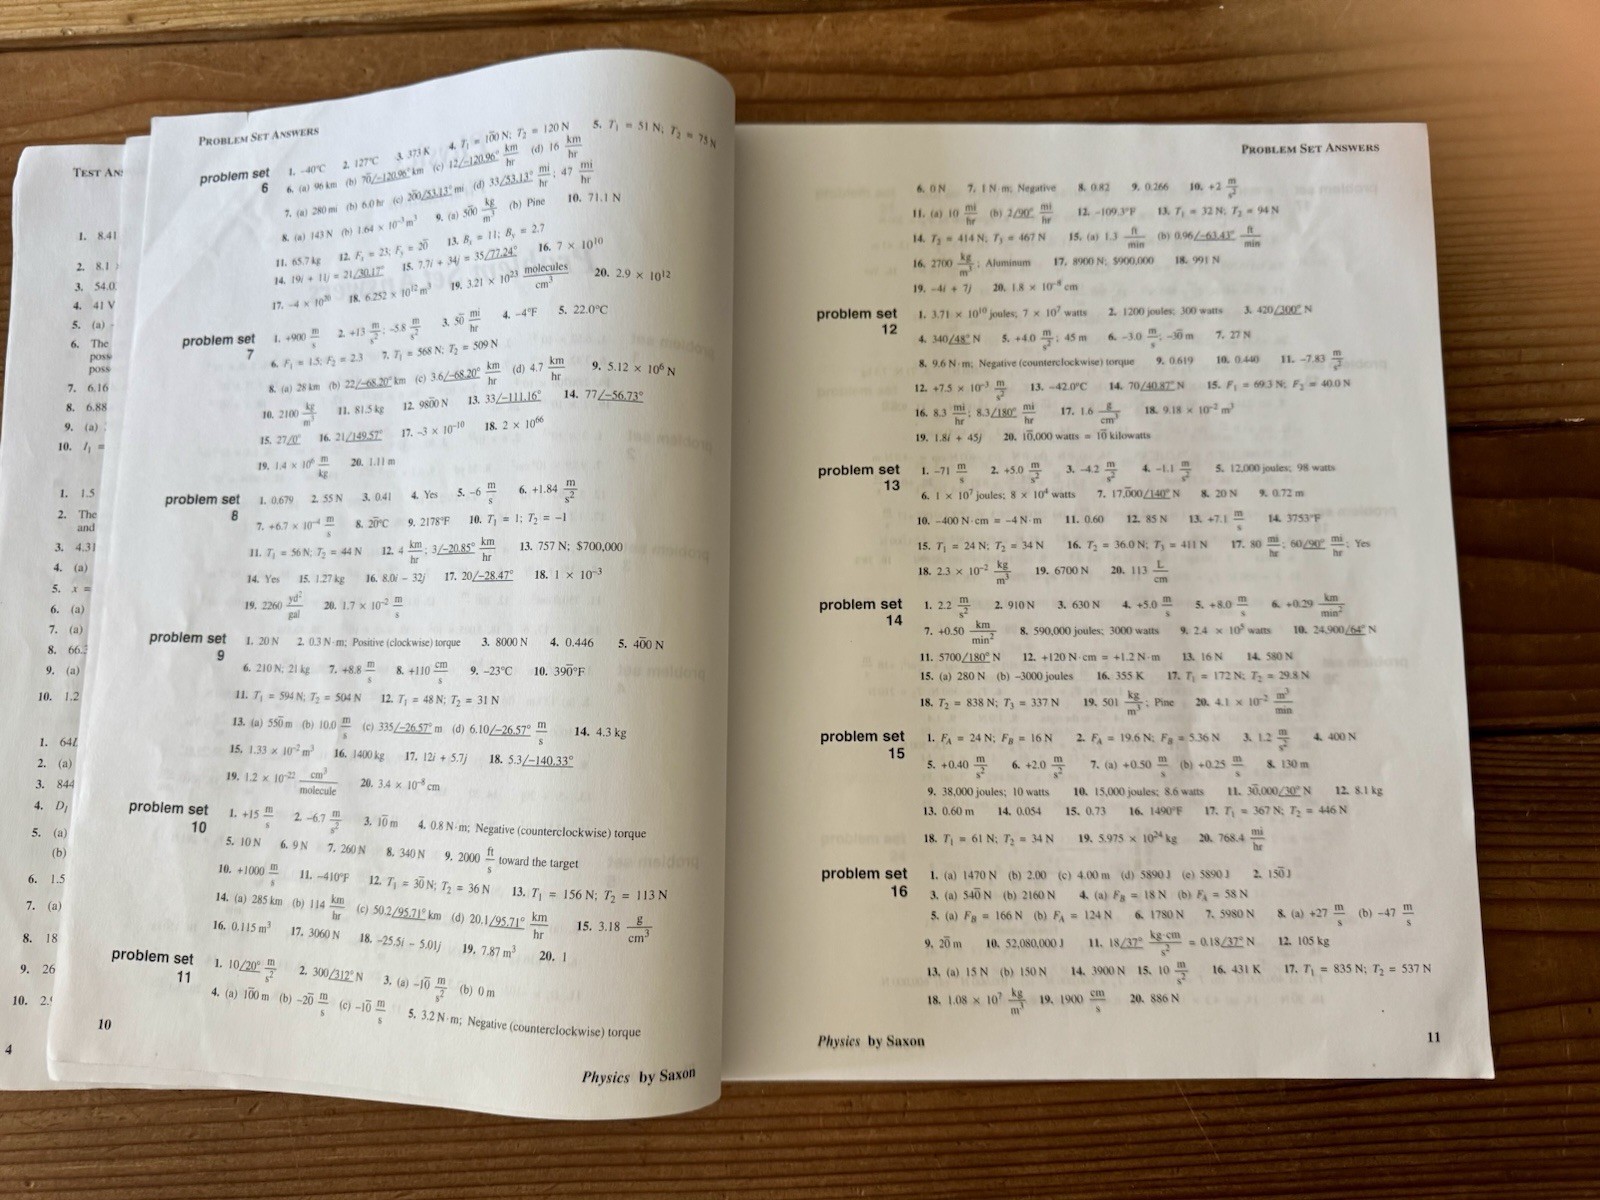 TEST AN
1. 8.41
2. 8.1
3. 54.0
4. 41 V
5. (a) -
6. The
poss
poss
7. 6.16
8. 6.88
9. (a)
10. I₁ =
1. 1.5
2. The
and
3. 4.31
4. (a)
5. x =
6. (a)
7. (a)
8. 66.3
9. (a)
10. 1.2
1. 64
2. (a)
3. 844
4. D
5. (a)
(b)
6. 1.5
7. (a)
8. 18
9. 26
10. 2.
4
PROBLEM SET ANSWERS
problem set 6
1. -40°C 2. 127°C 3. 373 K 4. T₁ = 10̅0 N; T₂ = 120 N 5. T₁ = 51 N; T₂ = 75 N
6. (a) 96 km (b) 70/-120.96° km (c) 12/-120.96° km/hr (d) 16 km/hr
7. (a) 280 mi (b) 6.0 hr (c) 20̅0/53.13° mi (d) 33/53.13° mi/hr; 47 mi/hr
8. (a) 143 N (b) 1.64 × 10⁻³ m³ 9. (a) 50̅0 kg/m³ (b) Pine 10. 71.1 N
11. 65.7 kg 12. Fₓ = 23; Fᵧ = 20̅ 13. Bₓ = 11; Bᵧ = 2.7
14. 19i + 11j = 21/30.17° 15. 7.7i + 34j = 35/77.24° 16. 7 × 10¹⁰
17. -4 × 10²⁰ 18. 6.252 × 10¹² m³ 19. 3.21 × 10²³ molecules/cm³ 20. 2.9 × 10¹²
problem set 7
1. +900 m/s 2. +13 m/s²; -5.8 m/s² 3. 50̅ mi/hr 4. -4°F 5. 22.0°C
6. F₁ = 1.5; F₂ = 2.3 7. T₁ = 568 N; T₂ = 509 N
8. (a) 28 km (b) 22/-68.20° km (c) 3.6/-68.20° km/hr (d) 4.7 km/hr 9. 5.12 × 10⁶ N
10. 2100 kg/m³ 11. 81.5 kg 12. 980̅0 N 13. 33/-111.16° 14. 77/-56.73°
15. 27/0° 16. 21/149.57° 17. -3 × 10⁻¹⁰ 18. 2 × 10⁶⁶
19. 1.4 × 10⁶ m/kg 20. 1.11 m
problem set 8
1. 0.679 2. 55 N 3. 0.41 4. Yes 5. -6 m/s 6. +1.84 m/s²
7. +6.7 × 10⁻⁴ m/s 8. 20̅°C 9. 2178°F 10. T₁ = 1; T₂ = -1
11. T₁ = 56 N; T₂ = 44 N 12. 4 km/hr; 3/-20.85° km/hr 13. 757 N; $700,000
14. Yes 15. 1.27 kg 16. 8.0i - 32j 17. 20/-28.47° 18. 1 × 10⁻³
19. 2260 yd²/gal 20. 1.7 × 10⁻² m/s
problem set 9
1. 20 N 2. 0.3 N·m; Positive (clockwise) torque 3. 8000 N 4. 0.446 5. 40̅0 N
6. 210 N; 21 kg 7. +8.8 m/s 8. +110 cm/s 9. -23°C 10. 390̅°F
11. T₁ = 594 N; T₂ = 504 N 12. T₁ = 48 N; T₂ = 31 N
13. (a) 550̅ m (b) 10.0 m/s (c) 335/-26.57° m (d) 6.10/-26.57° m/s 14. 4.3 kg
15. 1.33 × 10⁻² m³ 16. 1400 kg 17. 12i + 5.7j 18. 5.3/-140.33°
19. 1.2 × 10⁻²² cm³/molecule 20. 3.4 × 10⁻⁸ cm
problem set 10
1. +15 m/s 2. -6.7 m/s² 3. 10̅ m 4. 0.8 N·m; Negative (counterclockwise) torque
5. 10 N 6. 9 N 7. 260 N 8. 340 N 9. 2000 ft/s toward the target
10. +1000 m/s 11. -410°F 12. T₁ = 30̅ N; T₂ = 36 N 13. T₁ = 156 N; T₂ = 113 N
14. (a) 285 km (b) 114 km/hr (c) 50.2/95.71° km (d) 20.1/95.71° km/hr 15. 3.18 g/cm³
16. 0.115 m³ 17. 3060 N 18. -25.5i - 5.01j 19. 7.87 m³ 20. 1
problem set 11
1. 10/20° m/s² 2. 300/312° N 3. (a) -10̅ m/s² (b) 0 m
4. (a) 10̅0 m (b) -20̅ m/s (c) -10̅ m/s 5. 3.2 N·m; Negative (counterclockwise) torque
10
Physics by Saxon
PROBLEM SET ANSWERS
6. 0 N 7. 1 N·m; Negative 8. 0.82 9. 0.266 10. +2 m/s²
11. (a) 10 mi/hr (b) 2/90° mi/hr 12. -109.3°F 13. T₁ = 32 N; T₂ = 94 N
14. T₂ = 414 N; T₃ = 467 N 15. (a) 1.3 ft/min (b) 0.96/-63.43° ft/min
16. 2700 kg/m³; Aluminum 17. 8900 N; $900,000 18. 991 N
19. -4i + 7j 20. 1.8 × 10⁻⁸ cm
problem set 12
1. 3.71 × 10¹⁰ joules; 7 × 10⁷ watts 2. 1200 joules; 300 watts 3. 420/300° N
4. 340/48° N 5. +4.0 m/s²; 45 m 6. -3.0 m/s; -30̅ m 7. 27 N
8. 9.6 N·m; Negative (counterclockwise) torque 9. 0.619 10. 0.440 11. -7.83 m/s²
12. +7.5 × 10⁻³ m/s² 13. -42.0°C 14. 70/40.87° N 15. F₁ = 69.3 N; F₂ = 40.0 N
16. 8.3 mi/hr; 8.3/180° mi/hr 17. 1.6 g/cm³ 18. 9.18 × 10⁻² m³
19. 1.8i + 45j 20. 10̅,000 watts = 10̅ kilowatts
problem set 13
1. -71 m/s 2. +5.0 m/s² 3. -4.2 m/s² 4. -1.1 m/s² 5. 12,000 joules; 98 watts
6. 1 × 10⁷ joules; 8 × 10⁴ watts 7. 17,0̅00/140° N 8. 20 N 9. 0.72 m
10. -400 N·cm = -4 N·m 11. 0.60 12. 85 N 13. +7.1 m/s 14. 3753°F
15. T₁ = 24 N; T₂ = 34 N 16. T₂ = 36.0 N; T₃ = 411 N 17. 80 mi/hr; 60/90° mi/hr; Yes
18. 2.3 × 10⁻² kg/m³ 19. 6700 N 20. 113 L/cm
problem set 14
1. 2.2 m/s² 2. 910 N 3. 630 N 4. +5.0 m/s 5. +8.0 m/s 6. +0.29 km/min²
7. +0.50 km/min² 8. 590,000 joules; 3000 watts 9. 2.4 × 10⁵ watts 10. 24,900/64° N
11. 5700/180° N 12. +120 N·cm = +1.2 N·m 13. 16 N 14. 580 N
15. (a) 280 N (b) -3000 joules 16. 355 K 17. T₁ = 172 N; T₂ = 29.8 N
18. T₂ = 838 N; T₃ = 337 N 19. 501 kg/m³; Pine 20. 4.1 × 10⁻² m³/min
problem set 15
1. F_A = 24 N; F_B = 16 N 2. F_A = 19.6 N; F_B = 5.36 N 3. 1.2 m/s² 4. 400 N
5. +0.40 m/s² 6. +2.0 m/s² 7. (a) +0.50 m/s (b) +0.25 m/s 8. 130 m
9. 38,000 joules; 10 watts 10. 15,000 joules; 8.6 watts 11. 30̅,000/30° N 12. 8.1 kg
13. 0.60 m 14. 0.054 15. 0.73 16. 1490°F 17. T₁ = 367 N; T₂ = 446 N
18. T₁ = 61 N; T₂ = 34 N 19. 5.975 × 10²⁴ kg 20. 768.4 mi/hr
problem set 16
1. (a) 1470 N (b) 2.00 (c) 4.00 m (d) 5890 J (e) 5890 J 2. 150̅ J
3. (a) 540̅ N (b) 2160 N 4. (a) F_B = 18 N (b) F_A = 58 N
5. (a) F_B = 166 N (b) F_A = 124 N 6. 1780 N 7. 5980 N 8. (a) +27 m/s (b) -47 m/s
9. 20̅ m 10. 52,080,000 J 11. 18/37° kg·cm/s² = 0.18/37° N 12. 105 kg
13. (a) 15 N (b) 150 N 14. 3900 N 15. 10 m/s² 16. 431 K 17. T₁ = 835 N; T₂ = 537 N
18. 1.08 × 10⁷ kg/m³ 19. 1900 cm/s 20. 886 N
Physics by Saxon
11